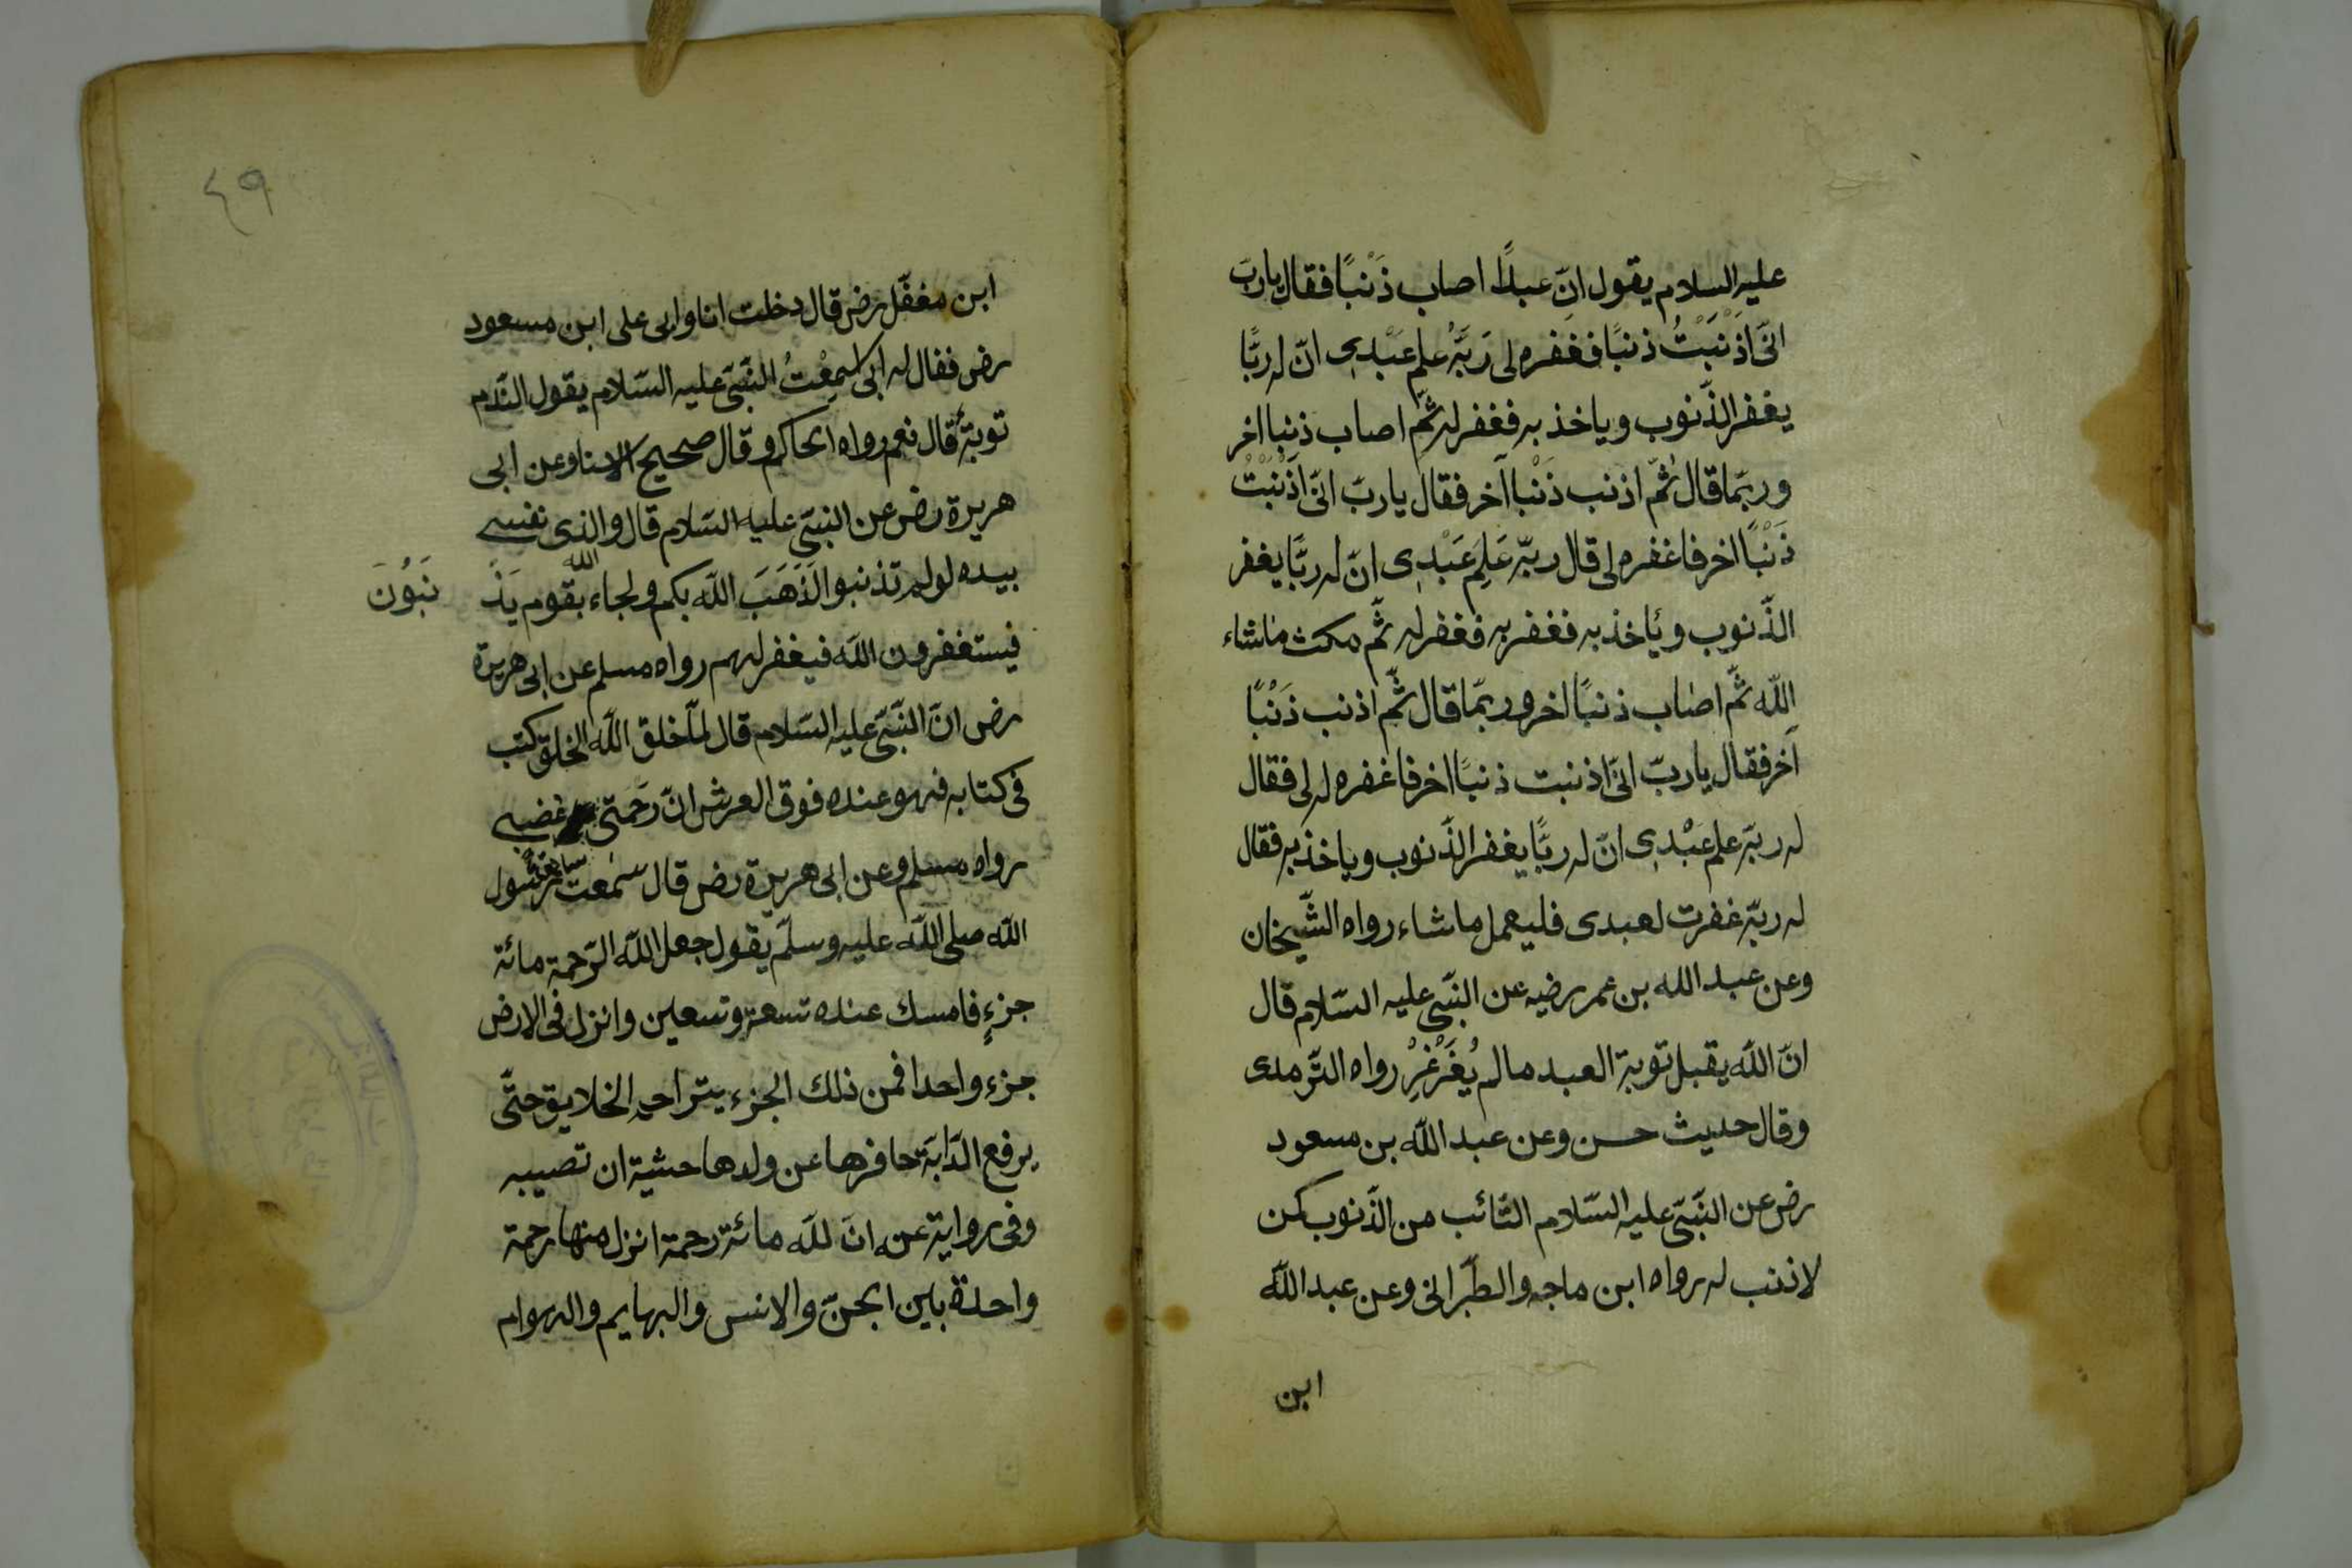 عليه السلام يقول انّ عبدًا اصاب ذَنْبًا فقال يا ربّ
انّى اَذْنَبْتُ ذنبًا فغفره لى رَبَّهُ علم عَبْدِى انّ له ربًّا
يغفر الذّنوب وياخذ به فغفر له ثمّ اصاب ذنبا اخر
وربّما قال ثمّ اذنب ذَنْبا آخر فقال يا ربّ انّى اَذْنَبْتُ
ذَنْبًا اخر فاغفره لى قال ربّه عَلِمَ عَبْدِى انّ له ربًّا يغفر
الذّنوب ويأخذ به فغفر به فغفر له ثمّ مكث ماشاء
اللّه ثمّ اصاب ذنبًا اخر وربّما قال ثمّ اذنب ذَنْبًا
آخر فقال يا ربّ انّى اذنبت ذنبًا اخر فاغفره له لى فقال
له ربّه علم عَبْدِى انّ له ربًّا يغفر الذّنوب وياخذ به فقال
له ربّه غفرت لعبدى فليعمل ماشاء رواه الشّيخان
وعن عبد الله بن عمر رضيه عن النّبى عليه السّلام قال
انّ اللّه يقبل توبة العبد مالم يُغَرْغِرْ رواه التّرمدى
وقال حديث حسن وعن عبد اللّه بن مسعود
رض عن النّبىّ عليه السّلام التّائب من الذّنوب كمن
لاذنب له رواه ابن ماجه والطّبرانى وعن عبد اللّه
ابن
٤٩
ابن مغفّل رض قال دخلت انا وابى على ابن مسعود
رض فقال له ابى اسمِعْتُ النّبىّ عليه السّلام يقول النّدم
توبة قال نعم رواه الحاكم وقال صحيح الاسنا وعن ابى
هريرة رض عن النبىّ عليه السّلام قال والذى نفسى
بيده لولم تذنبوا لَذَهَبَ اللّه بكم ولجاء اللّه بقوم يَذْ نَبُوُنَ
فيستغفرون اللّه فيغفر لهم رواه مسلم عن ابى هريرة
رض انّ النّبىّ عليه السّلام قال لمّا خلق اللّه الخلق كتب
فى كتابه فهو عنده فوق العرش انّ رَحمتى غضبى
رواه مسلم وعن ابى هريرة رض قال سمعت رسُول
اللّه صلى اللّه عليه وسلّم يقول جعل اللّه الرّحمة مائة
جزءٍ فامسك عنده تسعة وتسعين وانزل فى الارض
جزء واحدا فمن ذلك الجزء يتراحم الخلايق حتّى
يرفع الدّابّة حافرها عن ولدها حشية ان تصيبه
وفى رواية عنه انّ للّه مائة رحمة انزل منها رحمة
واحدة باين الجنّ والانس والبهايم والهوام